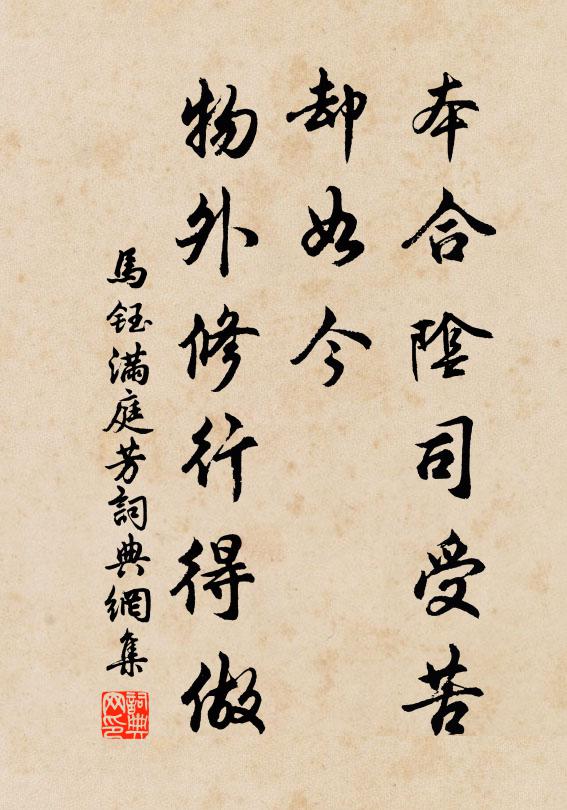 本合陰司受苦
却如今
物外修行得做
馬鈺滿庭芳詞典網集
詞典網印